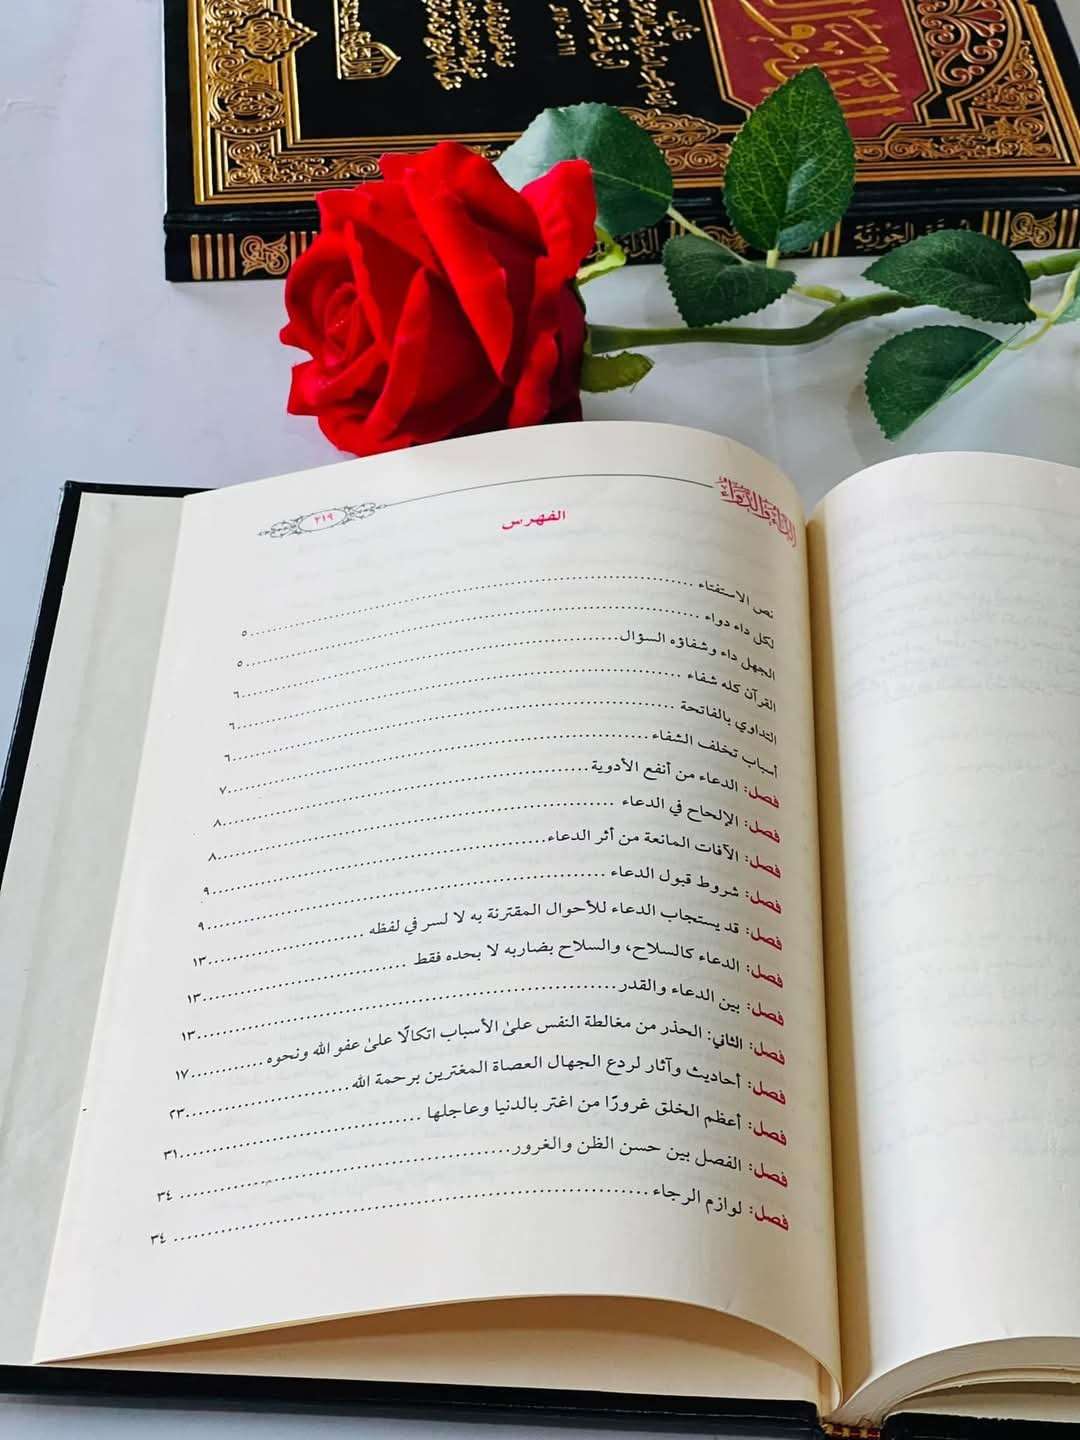 ابن قيم الجوزية
الداء والدواء
٢١٩
الفهرس
نص الاستفتاء ٥
لكل داء دواء ٥
الجهل داء وشفاؤه السؤال ٦
القرآن كله شفاء ٦
التداوي بالفاتحة ٦
أسباب تخلف الشفاء ٧
فصل: الدعاء من أنفع الأدوية ٨
فصل: الإلحاح في الدعاء ٨
فصل: الآفات المانعة من أثر الدعاء ٩
فصل: شروط قبول الدعاء ٩
فصل: قد يستجاب الدعاء للأحوال المقترنة به لا لسر في لفظه ١٣
فصل: الدعاء كالسلاح، والسلاح بضاربه لا بحده فقط ١٣
فصل: بين الدعاء والقدر ١٣
فصل: الثاني: الحذر من مغالطة النفس علىٰ الأسباب اتكالًا علىٰ عفو الله ونحوه ١٧
فصل: أحاديث وآثار لردع الجهال العصاة المغترين برحمة الله ٢٣
فصل: أعظم الخلق غرورًا من اغتر بالدنيا وعاجلها ٣١
فصل: الفصل بين حسن الظن والغرور ٣٤
فصل: لوازم الرجاء ٣٤